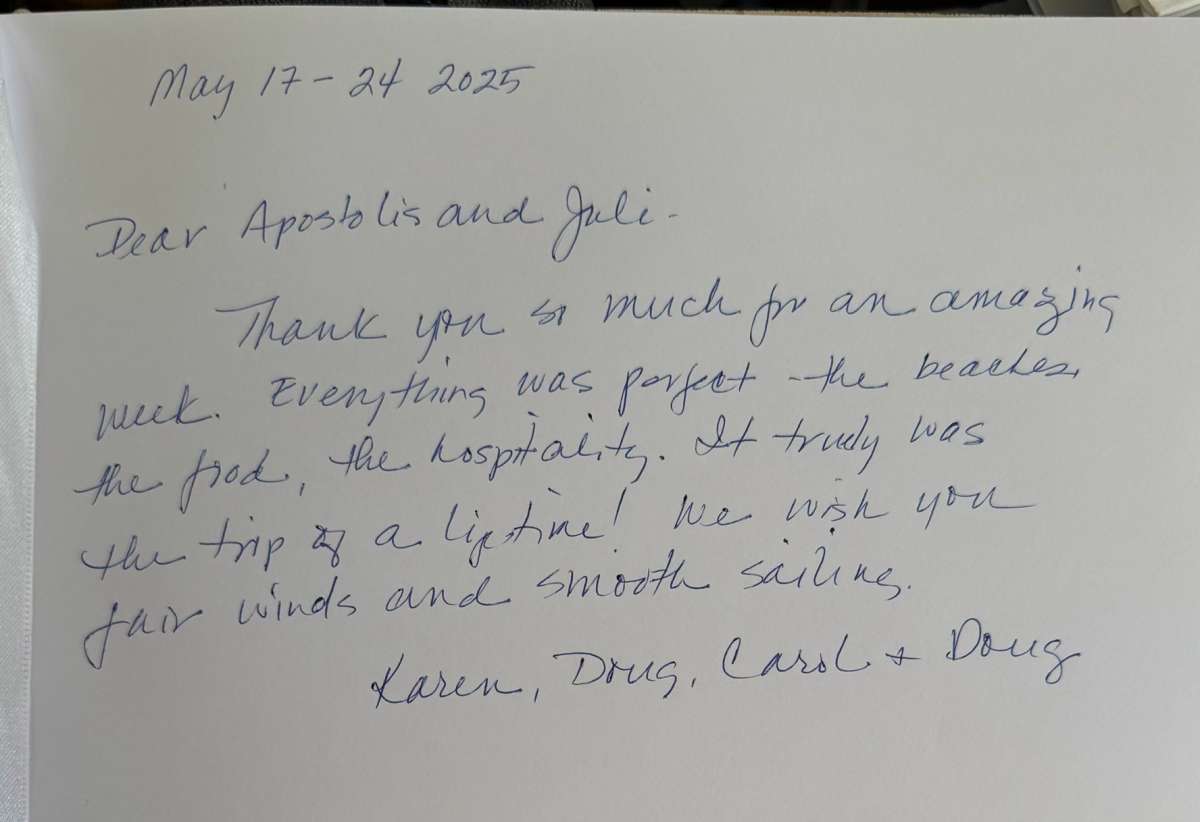 May 17 - 24 2025
Dear Apostolis and Juli -
Thank you so much for an amazing
week. Everything was perfect - the beaches,
the food, the hospitality. It truely was
the trip of a lifetime! We wish you
fair winds and smooth sailing.
Karen, Doug, Carol + Doug